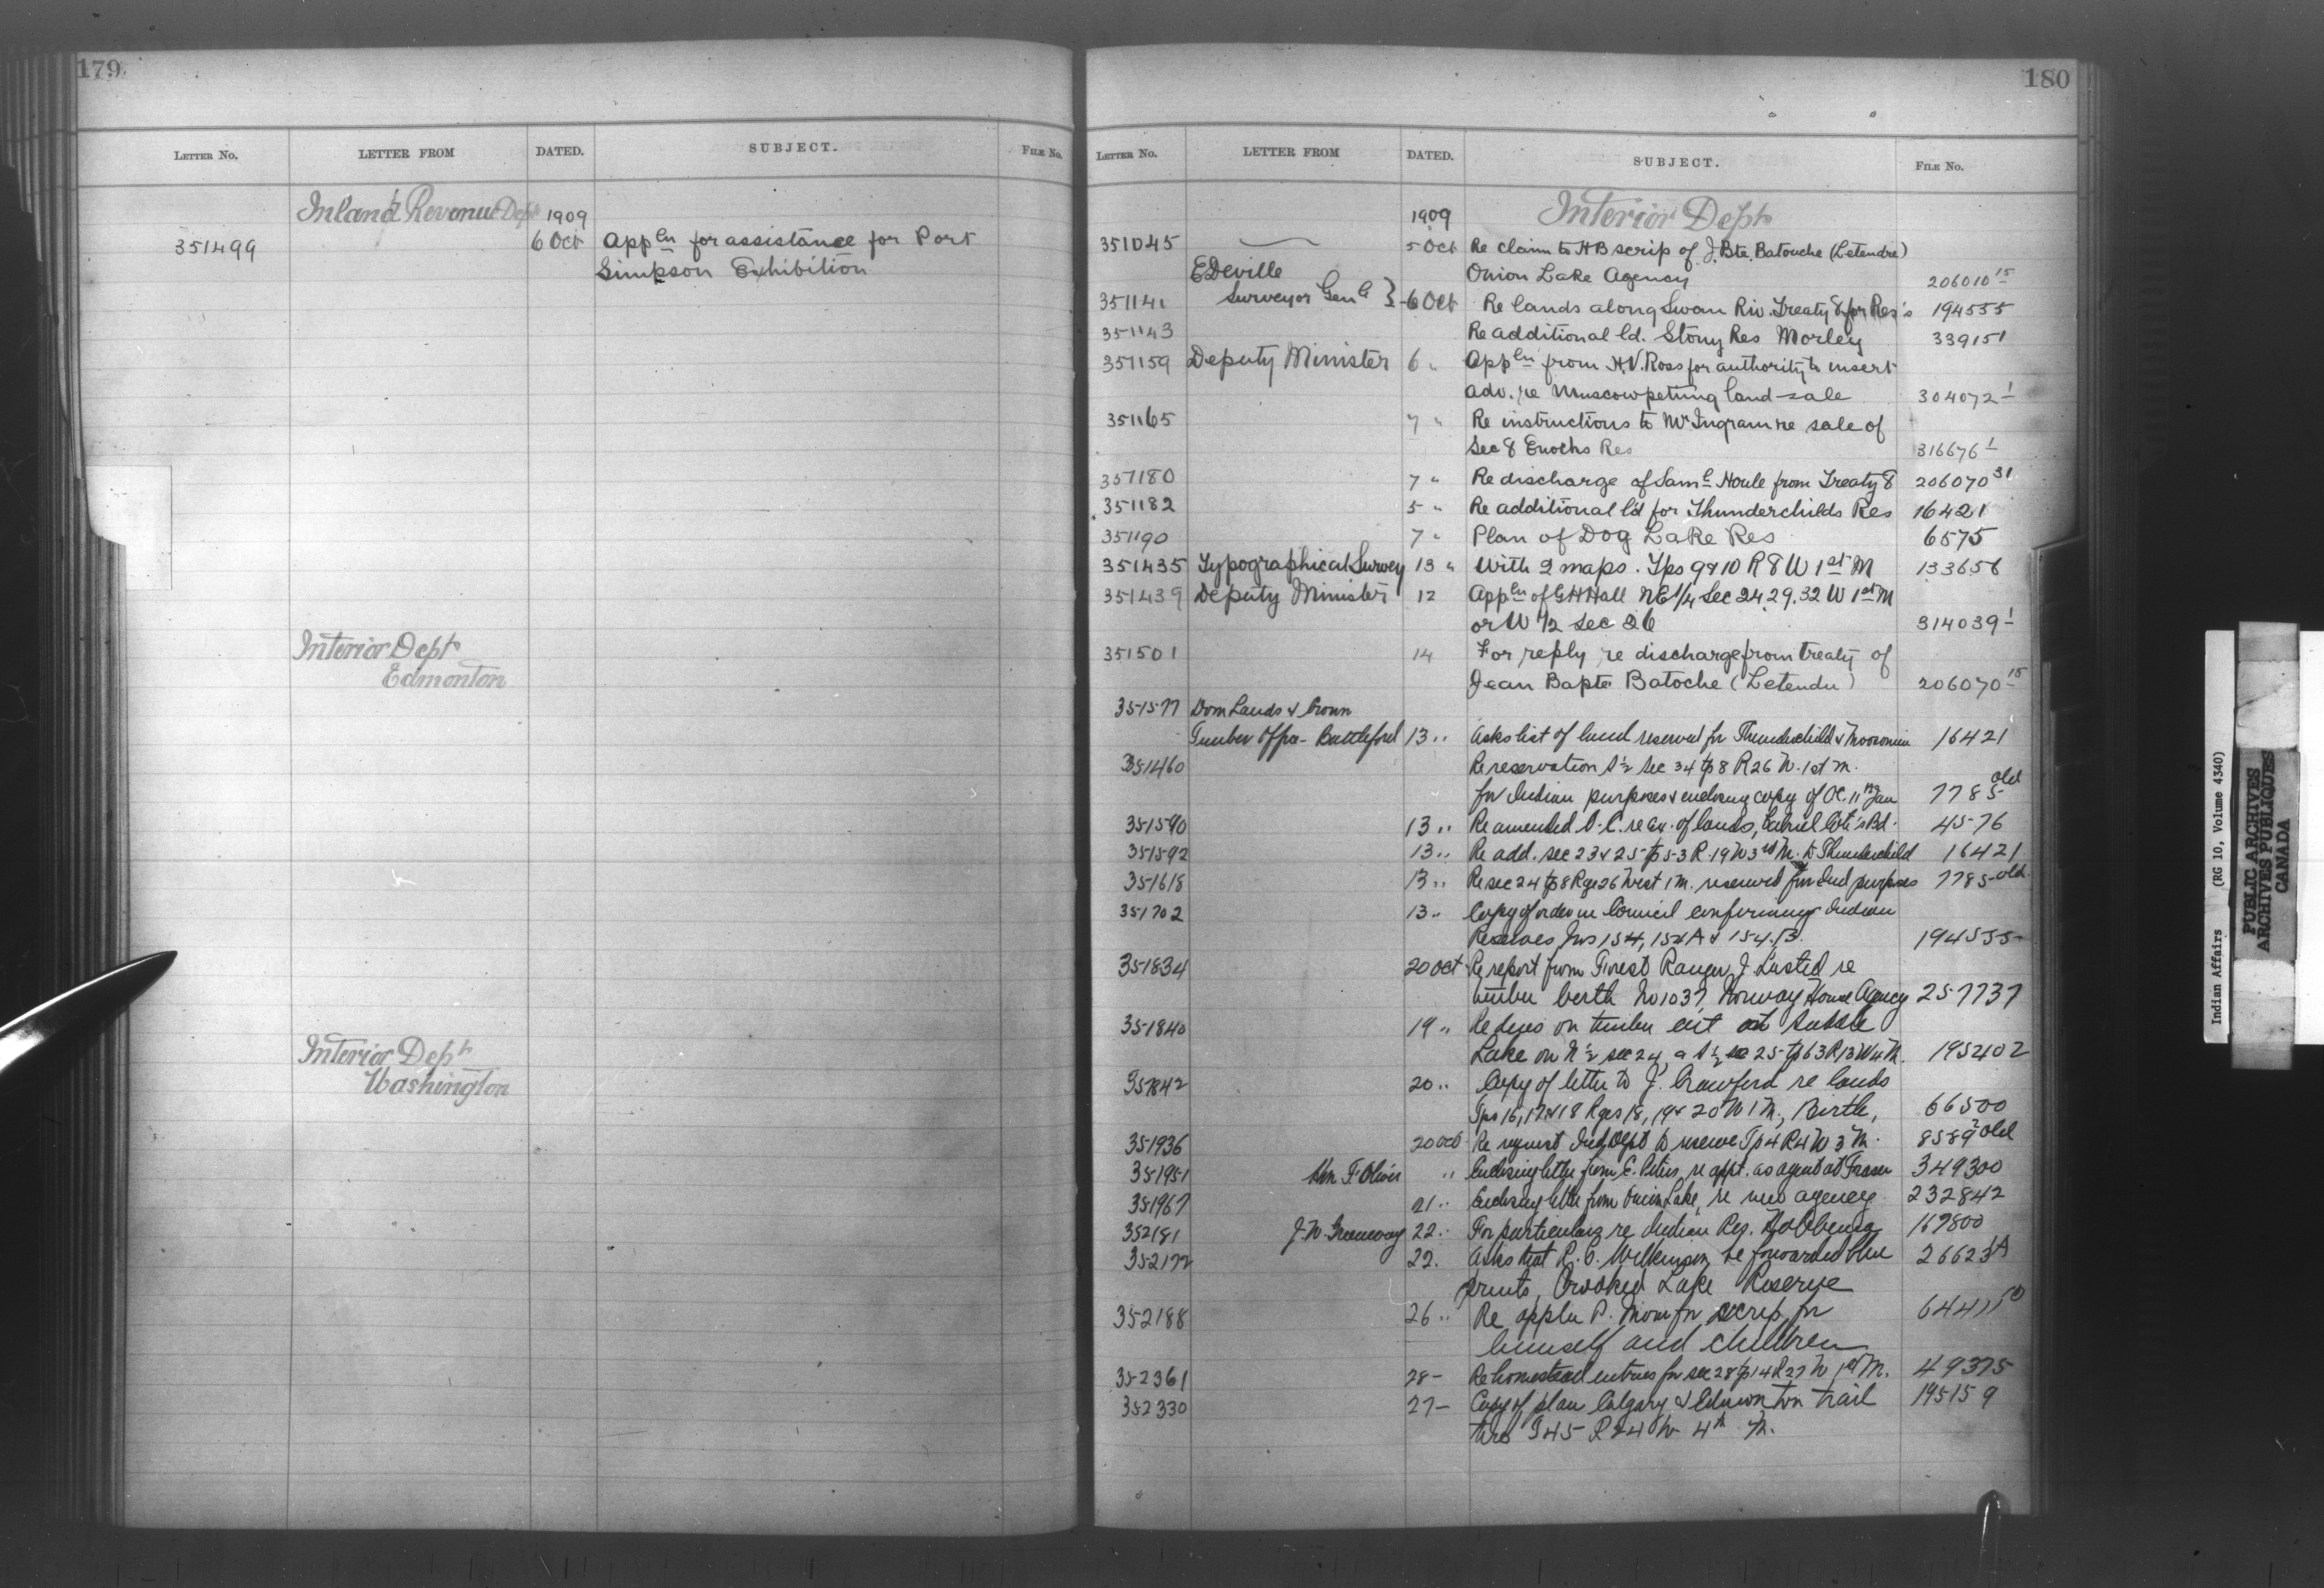 179
LETTER No. LETTER FROM DATED. SUBJECT. FILE No.
Inland Revenue Dept 1909
351499 6 Oct Appln for assistance for Port
Simpson Exhibition
Interior Dept
Edmonton
Interior Dept
Washington
180
LETTER No. LETTER FROM DATED. SUBJECT. FILE No.
1909 Interior Dept
351045 5 Oct Re claim to HB scrip of J. Bte. Batouche (Letendre)
E Deville Onion Lake Agency 206010 15
351141 Surveyor Genl } 6 Oct Re lands along Swan Riv. Treaty 8 for Res's 194535
351143 Re additional ld. Stony Res Morley 339151
351159 Deputy Minister 6 " Appln from H.V. Ross for authority to insert
adv. re Muscowpetung land sale 304072 1
351165 7 " Re instructions to Mr Ingram re sale of
Sec 8 Enochs Res 316676 1
351180 7 " Re discharge of Saml Houle from Treaty 8 206070 31
351182 5 " Re additional ld for Thunderchilds Res 16421
351190 7 " Plan of Dog Lake Res 6575
351435 Typographical Survey 13 " With 2 maps. Tps 9 & 10 R 8 W 1st M 133656
351439 Deputy Minister 12 Appln of G H Hall NE 1/4 Sec 24.29.32 W 1st M
or W 1/2 sec 26 314039 1
351501 14 For reply re discharge from treaty of
Jean Bapte Batoche (Letendu) 206070 15
351577 Dom Lands & Crown
Timber Office - Battleford 13 " Asks list of land reserved for Thunderchild & Moosomin 16421
351460 Re reservation S 1/2 Sec 34 tp 8 R 26 W. 1st M.
for Indian purposes & enclosing copy of OC. 11th Jan 7785 old
351590 13 " Re amended O.C. re Ex. of lands, Gabriel Cote's Bd. 4576
351592 13 " Re add. sec 23 & 25 tp 53 R. 19 W 3rd M. to Thunderchild 16421
351618 13 " Re sec 24 tp 8 Rge 26 West 1 M. reserved for Ind purposes 7785 old
351702 13 " Copy of order in Council confirming Indian
Reserves Nos 154, 154A & 154.B. 194535
351834 20 Oct Re report from Forest Ranger J. Lusted re
timber berth No 1037, Norway House Agency 257737
351840 19 " Re dues on timber cut at Saddle
Lake on N 1/2 sec 24, & S 1/2 sec 25 tp 63 R 13 W 4 M. 195402
351842 20 " Copy of letter to J. Crawford re lands
Tps 16, 17 & 18 Rges 18, 19 & 20 W 1 M., Birtle, 66500
351936 20 Oct Re request Ind Dept to reserve Tp 4 R 4 W 3 M. 8589 2 old
351951 Hon F. Oliver " Enclosing letter from E. re appt. as agent at Fraser 349300
351967 21 " Enclosing letter from Onion Lake, re new agency 232842
352181 J. W. Greenway 22 " For particulars re Indian Res. Hobbema 169800
352172 22. Asks that R. C. Wilkinson be forwarded blue 26623 1A
prints, Crooked Lake Reserve
352188 26 " Re appln P. for scrip for
himself and children
352361 28 - Re homestead entries for sec 28 tp 14 R 27 W 1st M. 49375
352330 27 - Copy of plan Calgary & Edmonton trail 195159
thro T 45 R 24 W 4th M.
Indian Affairs (RG 10, Volume 4340)
PUBLIC ARCHIVES
ARCHIVES PUBLIQUES
CANADA